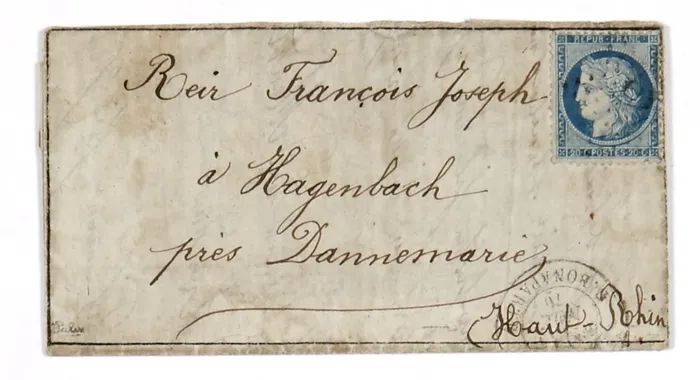 REPUB. FRANC.
20 C POSTES 20 C
Reir François Joseph
à Hagenbach
près Dannemarie
Haut-Rhin
BONAPAR